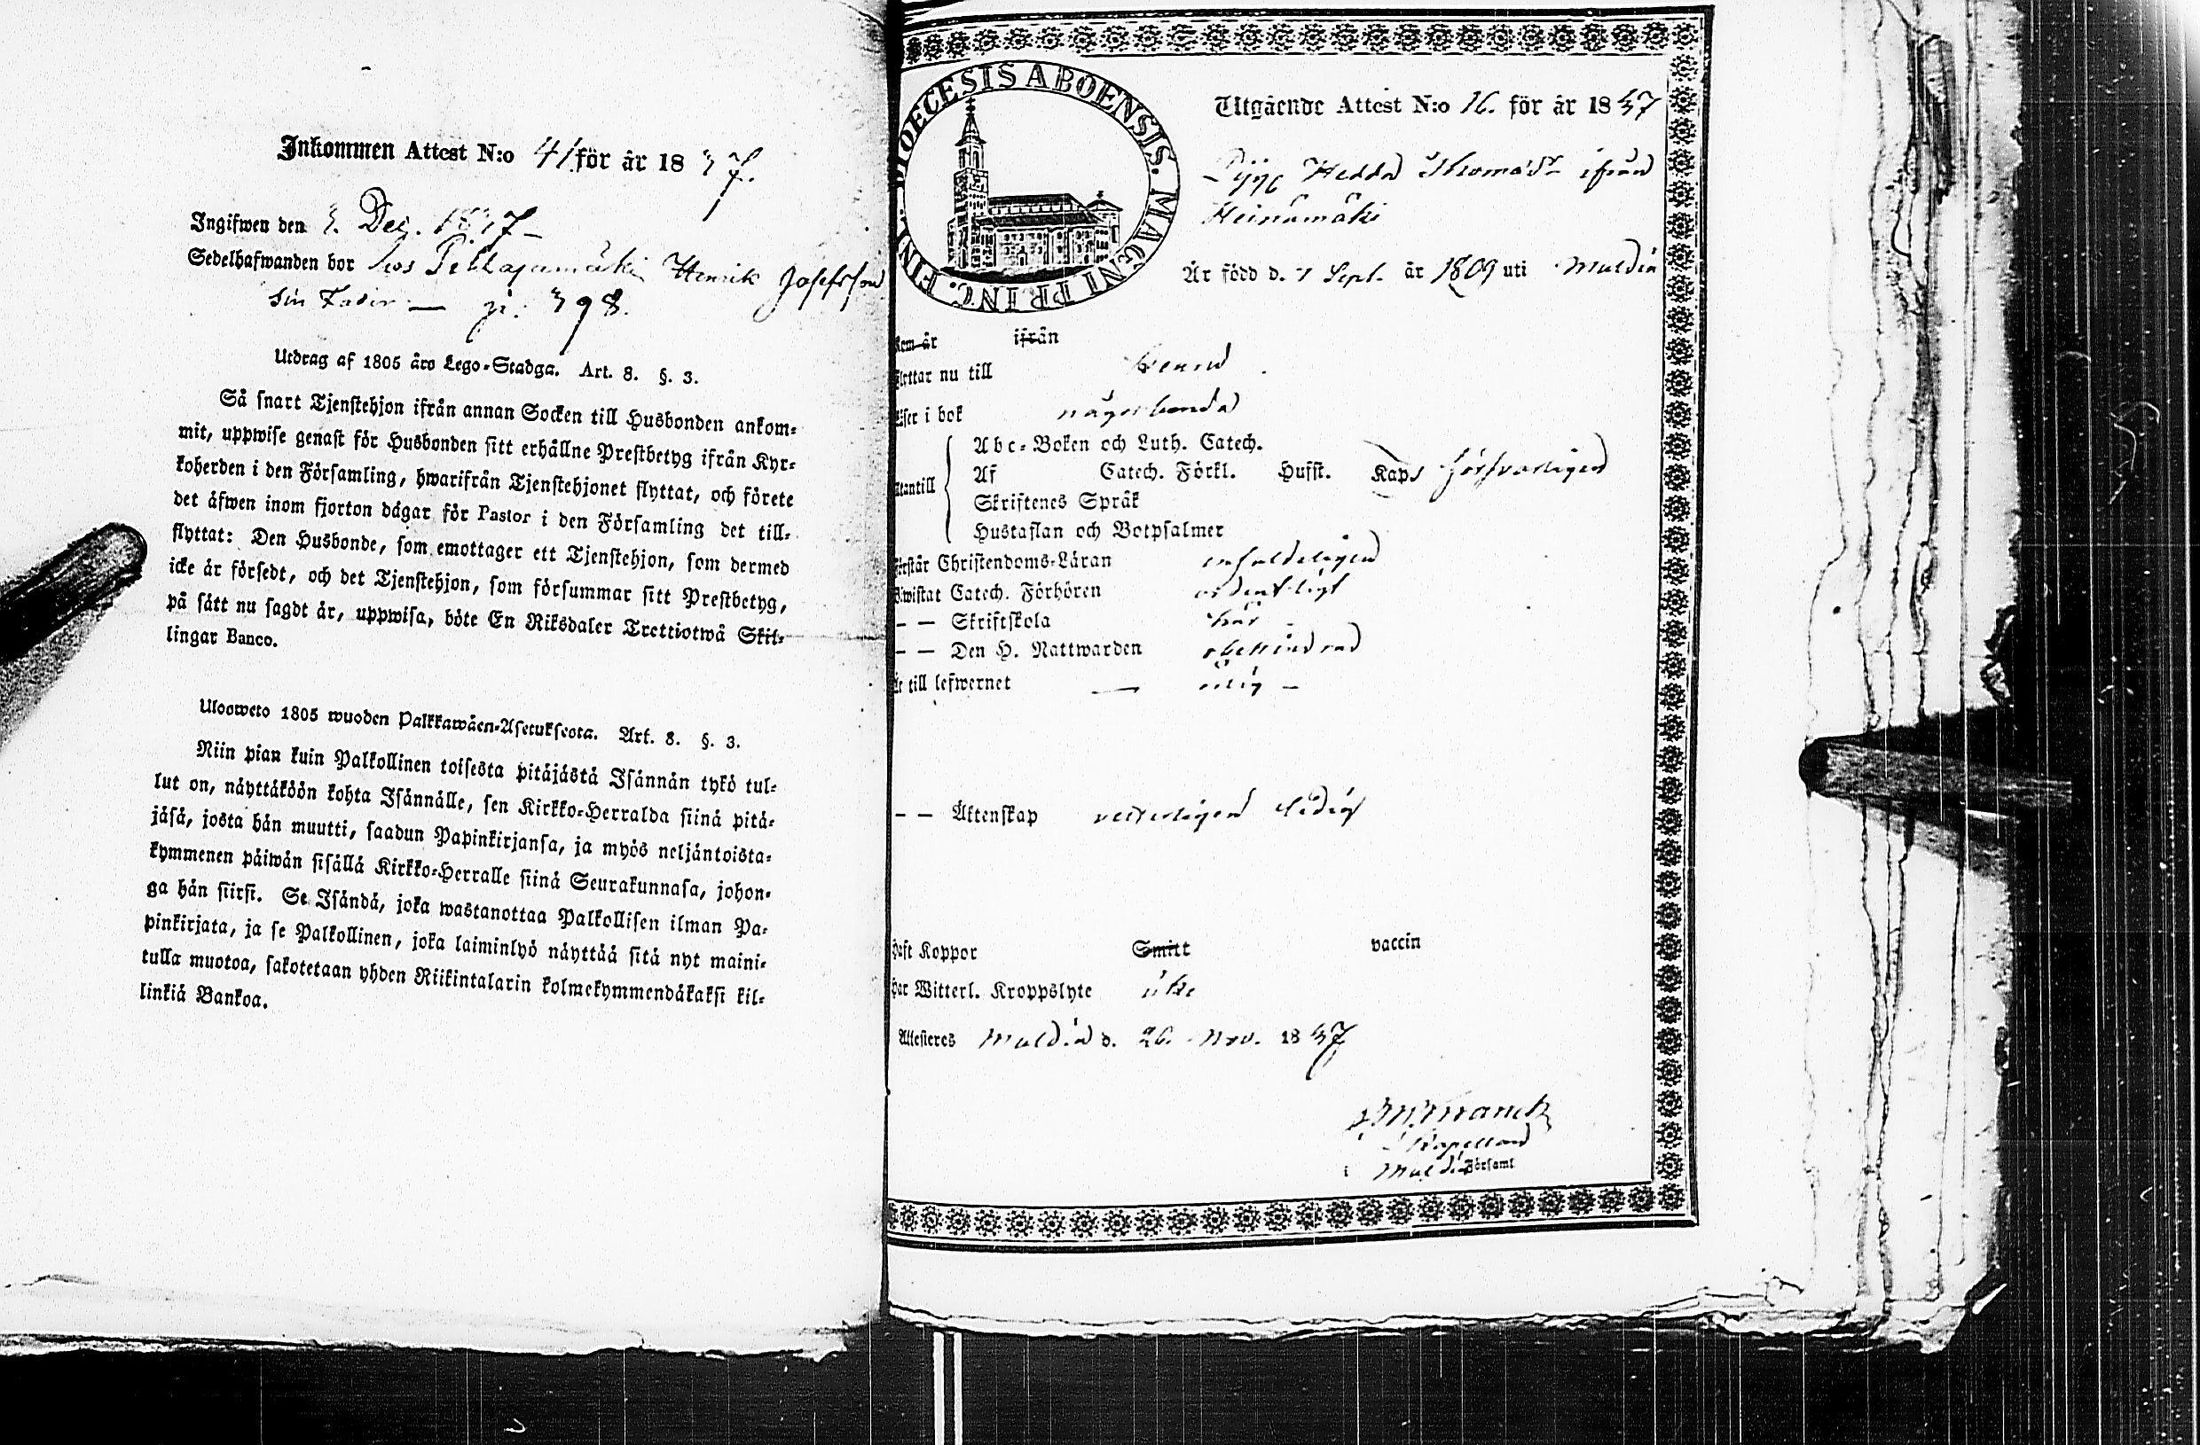 Inkommen Attest N:o 41 för år 1837.
Ingifwen den 3. Dec. 1837 –
Sedelhafwanden bor hos Pekkajumäki Henrik Josefsson
sin Fader — p. 398.
Utdrag af 1805 års Lego-Stadga. Art. 8. §. 3.
Så snart Tjenstehjon ifrån annan Socken till Husbonden ankom-
mit, uppwise genast för Husbonden sitt erhållne Prestbetyg ifrån Kyr-
koherden i den Församling, hwarifrån Tjenstehjonet flyttat, och förete
det äfwen inom fjorton dagar för Pastor i den Församling det till-
flyttat: Den Husbonde, som emottager ett Tjenstehjon, som dermed
icke är försedt, och det Tjenstehjon, som försummar sitt Prestbetyg,
på sätt nu sagdt är, uppwisa, böte En Riksdaler Trettiotwå Skil-
lingar Banco.
Ulosweto 1805 wuoden Palkkawäen-Asetuksesta. Art. 8. §. 3.
Niin pian kuin Palkollinen toisesta pitäjästä Isännän tykö tul-
lut on, näyttäköön kohta Isännälle, sen Kirkko-Herralda siinä pitä-
jäsä, josta hän muutti, saadun Papinkirjansa, ja myös neljäntoista-
kymmenen päiwän sisällä Kirkko-Herralle siinä Seurakunnasa, johon-
ga hän siirsi. Se Isändä, joka wastanottaa Palkollisen ilman Pa-
pinkirjata, ja se Palkollinen, joka laiminlyö näyttää sitä nyt maini-
tulla muotoa, sakotetaan yhden Riikintalarin kolmekymmendäkaksi kil-
linkiä Bankoa.
DIOECESIS ABOENSIS. MAGNI PRINC. FINL.
Utgående Attest N:o 16. för år 1837
Pyge Hedda Thomasdr ifrån
Heinämäki
Är född d. 1 Sept. år 1809 uti Muldia
Kom år ifrån
Flyttar nu till
Läser i bok någorlunda
Utantill
Abc-Boken och Luth. Catech.
Af Catech. Förkl. Husst. Kaps försvarligen
Skriftenes Språk
Hustaflan och Botpsalmer
Förstår Christendoms-Läran enfaldeligen
Bewistat Catech. Förhören ordentligt
– – Skriftskola här –
– – Den H. Nattwarden obehindrad
Är till lefwernet — ärlig –
– – Äktenskap veterligen ledig
Haft Koppor Smitt vaccin
Har Witterl. Kroppslyte icke
Attesteras Muldia d. 26. Nov. 1837
Kapellan
i Muldia Församl